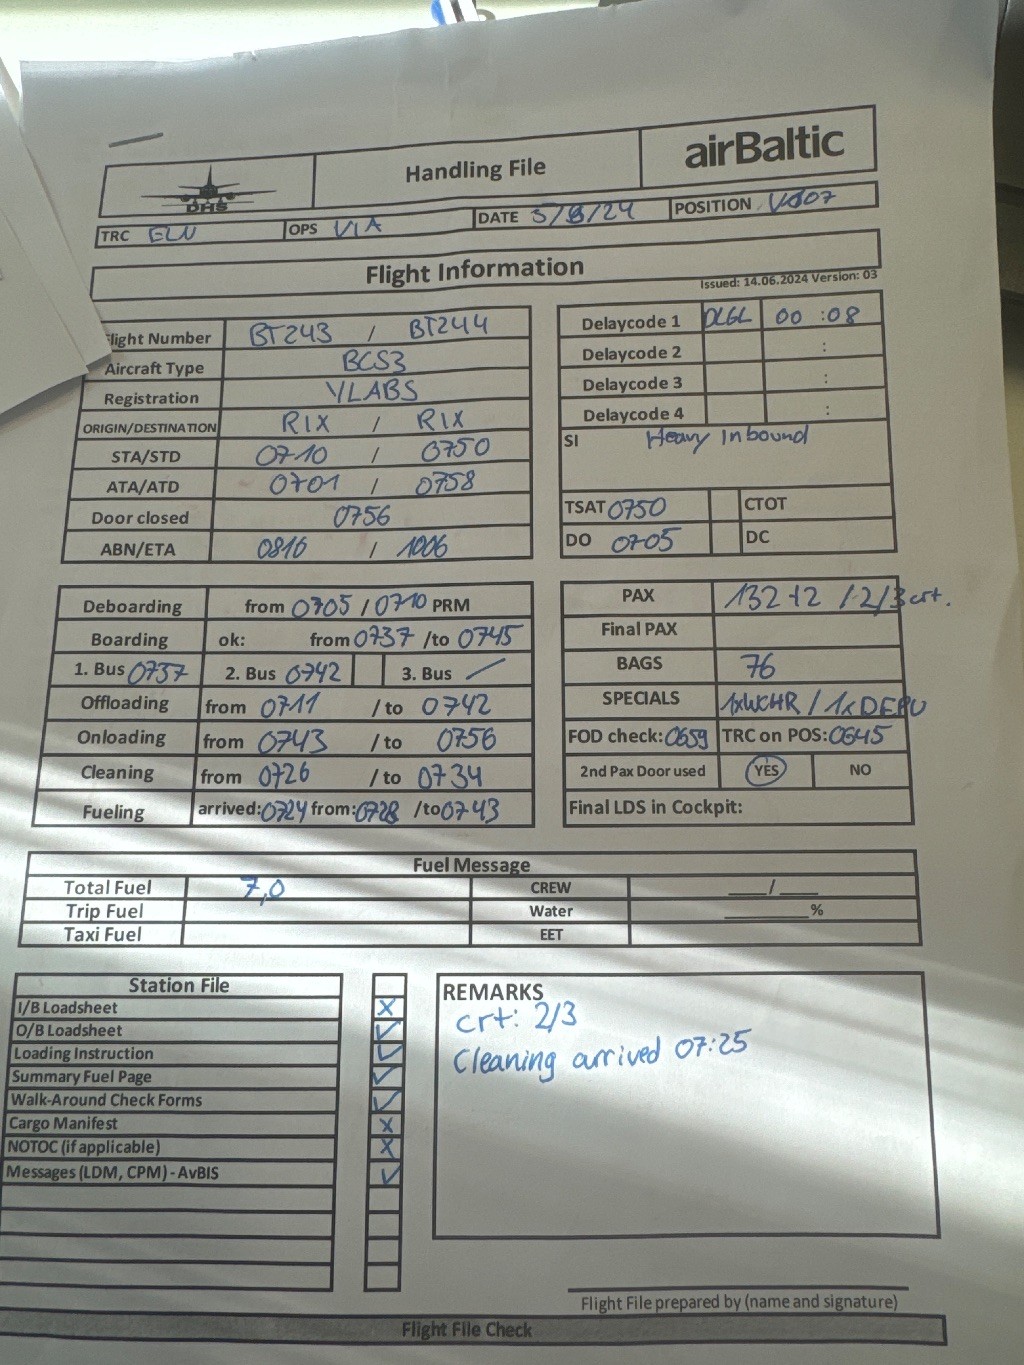 DHS
Handling File
airBaltic
TRC ELN OPS VIA DATE 5/8/24 POSITION V807
Flight Information
Issued: 14.06.2024 Version: 03
light Number BT243 / BT244
Aircraft Type BCS3
Registration YLABS
ORIGIN/DESTINATION RIX / RIX
STA/STD 0710 / 0750
ATA/ATD 0701 / 0758
Door closed 0756
ABN/ETA 0816 / 1006
Delaycode 1 DLGL 00 :08
Delaycode 2 :
Delaycode 3 :
Delaycode 4 :
SI Heavy Inbound
TSAT 0750 CTOT
DO 0705 DC
Deboarding from 0705 / 0710 PRM
Boarding ok: from 0737 /to 0745
1. Bus 0737 2. Bus 0742 3. Bus /
Offloading from 0711 /to 0742
Onloading from 0743 /to 0756
Cleaning from 0726 /to 0734
Fueling arrived:0724 from:0728 /to 0743
PAX 132+2 / 2/3 crt.
Final PAX
BAGS 76
SPECIALS 1xWCHR / 1xDEPU
FOD check: 0659 TRC on POS: 0645
2nd Pax Door used YES NO
Final LDS in Cockpit:
Fuel Message
Total Fuel 7,0 CREW ___/___
Trip Fuel Water ______%
Taxi Fuel EET
Station File
I/B Loadsheet X
O/B Loadsheet ✓
Loading Instruction ✓
Summary Fuel Page ✓
Walk-Around Check Forms ✓
Cargo Manifest X
NOTOC (if applicable) X
Messages (LDM, CPM) - AvBIS ✓
REMARKS
crt: 2/3
Cleaning arrived 07:25
Flight File prepared by (name and signature)
Flight File Check